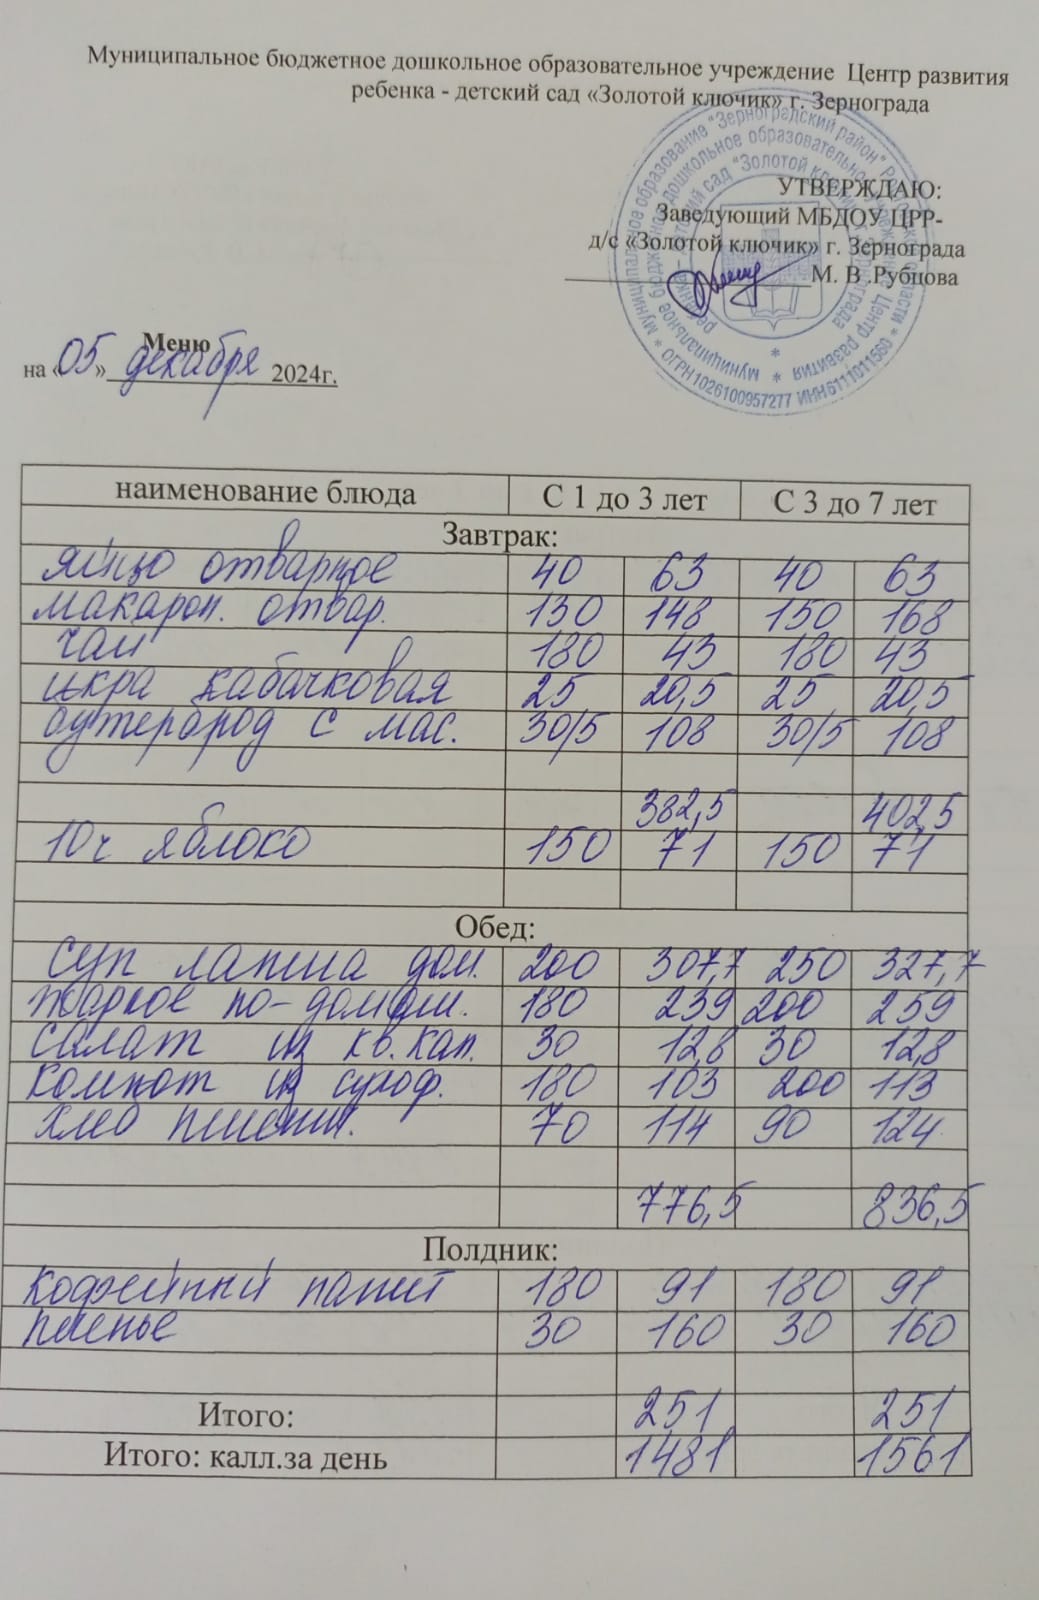 Муниципальное бюджетное дошкольное образовательное учреждение Центр развития
ребенка - детский сад «Золотой ключик» г. Зернограда
УТВЕРЖДАЮ:
Заведующий МБДОУ ЦРР-
д/с «Золотой ключик» г. Зернограда
М. В .Рубцова
муниципальное образование "Зерноградский район" Ростовской области * ОГРН 1026100957277 ИНН 6111011560 *
муниципальное бюджетное дошкольное образовательное учреждение Центр развития *
ребенка - детский сад "Золотой ключик" г. Зернограда *
Меню
на «05» декабря 2024г.
наименование блюда С 1 до 3 лет С 3 до 7 лет
Завтрак:
яйцо отварное 40 63 40 63
макарон. отвар. 130 148 150 168
чай 180 43 180 43
икра кабачковая 25 20,5 25 20,5
бутерброд с мас. 30/5 108 30/5 108
382,5 402,5
10ч яблоко 150 71 150 71
Обед:
суп лапша дом. 200 307,7 250 327,7
жаркое по-домаш. 180 239 200 259
салат из кв. кап. 30 12,8 30 12,8
компот из сухоф. 180 103 200 113
хлеб пшенич. 70 114 90 124
776,5 836,5
Полдник:
кофейный напит 180 91 180 91
печенье 30 160 30 160
Итого: 251 251
Итого: калл.за день 1481 1561